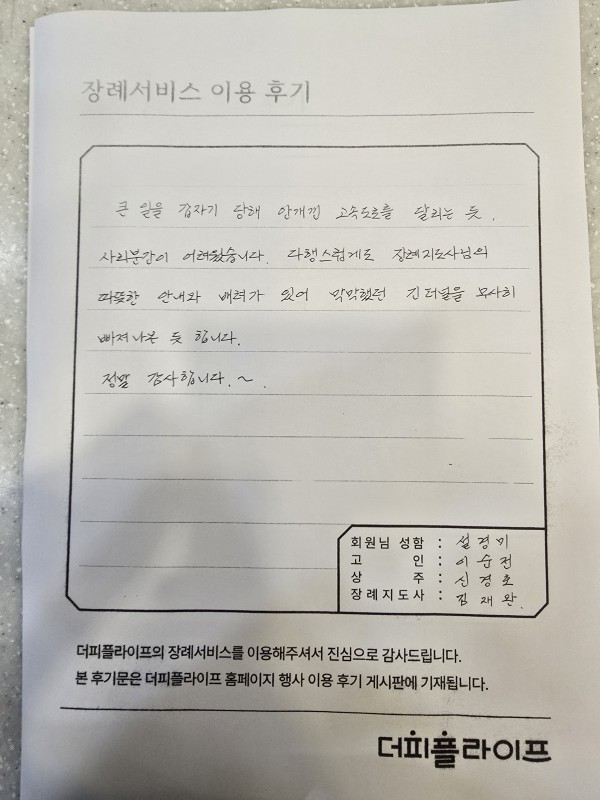 장례서비스 이용 후기
큰 일을 갑자기 당해 안개낀 고속도로를 달리는 듯,
사리분간이 어려웠습니다. 다행스럽게도 장례지도사님의
따뜻한 안내와 배려가 있어 막막했던 긴 터널을 무사히
빠져나온 듯 합니다.
정말 감사합니다.~.
회원님 성함 : 설경미
고 인 : 이순전
상 주 : 신경호
장례지도사 : 김재완
더피플라이프의 장례서비스를 이용해주셔서 진심으로 감사드립니다.
본 후기문은 더피플라이프 홈페이지 행사 이용 후기 게시판에 기재됩니다.
더피플라이프